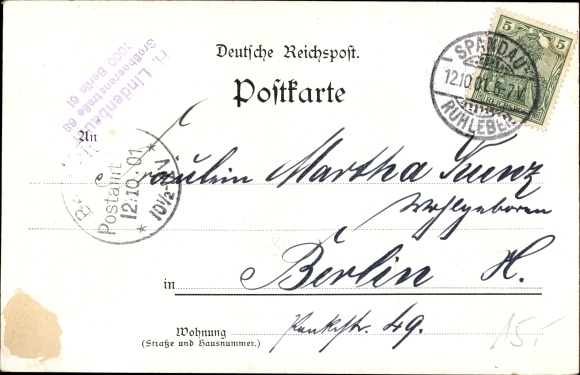 Deutsche Reichspost.
Postkarte
H. Lindenbeu
Großbeerenstraße 68
1000 Berlin 61
5 5
SPANDAU
12.10.01. 6-7 V.
RUHLEBEN
An
Postamt
12.10.01
* 10½ *
Fräulein Martha Kunz
Wohlgeboren
in Berlin N.
Wohnung Pankstr. 49.
(Straße und Hausnummer.)
15.-